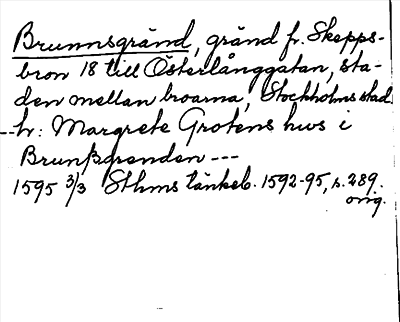 Brunnsgränd, gränd fr. Skepps-
bron 18 till Österlånggatan, sta-
den mellan broarna, Stockholms stad
--tr: Margrete Grotens hws i
Brunßgrenden ---
1595 3/3 Sthms tänkeb. 1592-95, s. 289.
orig.